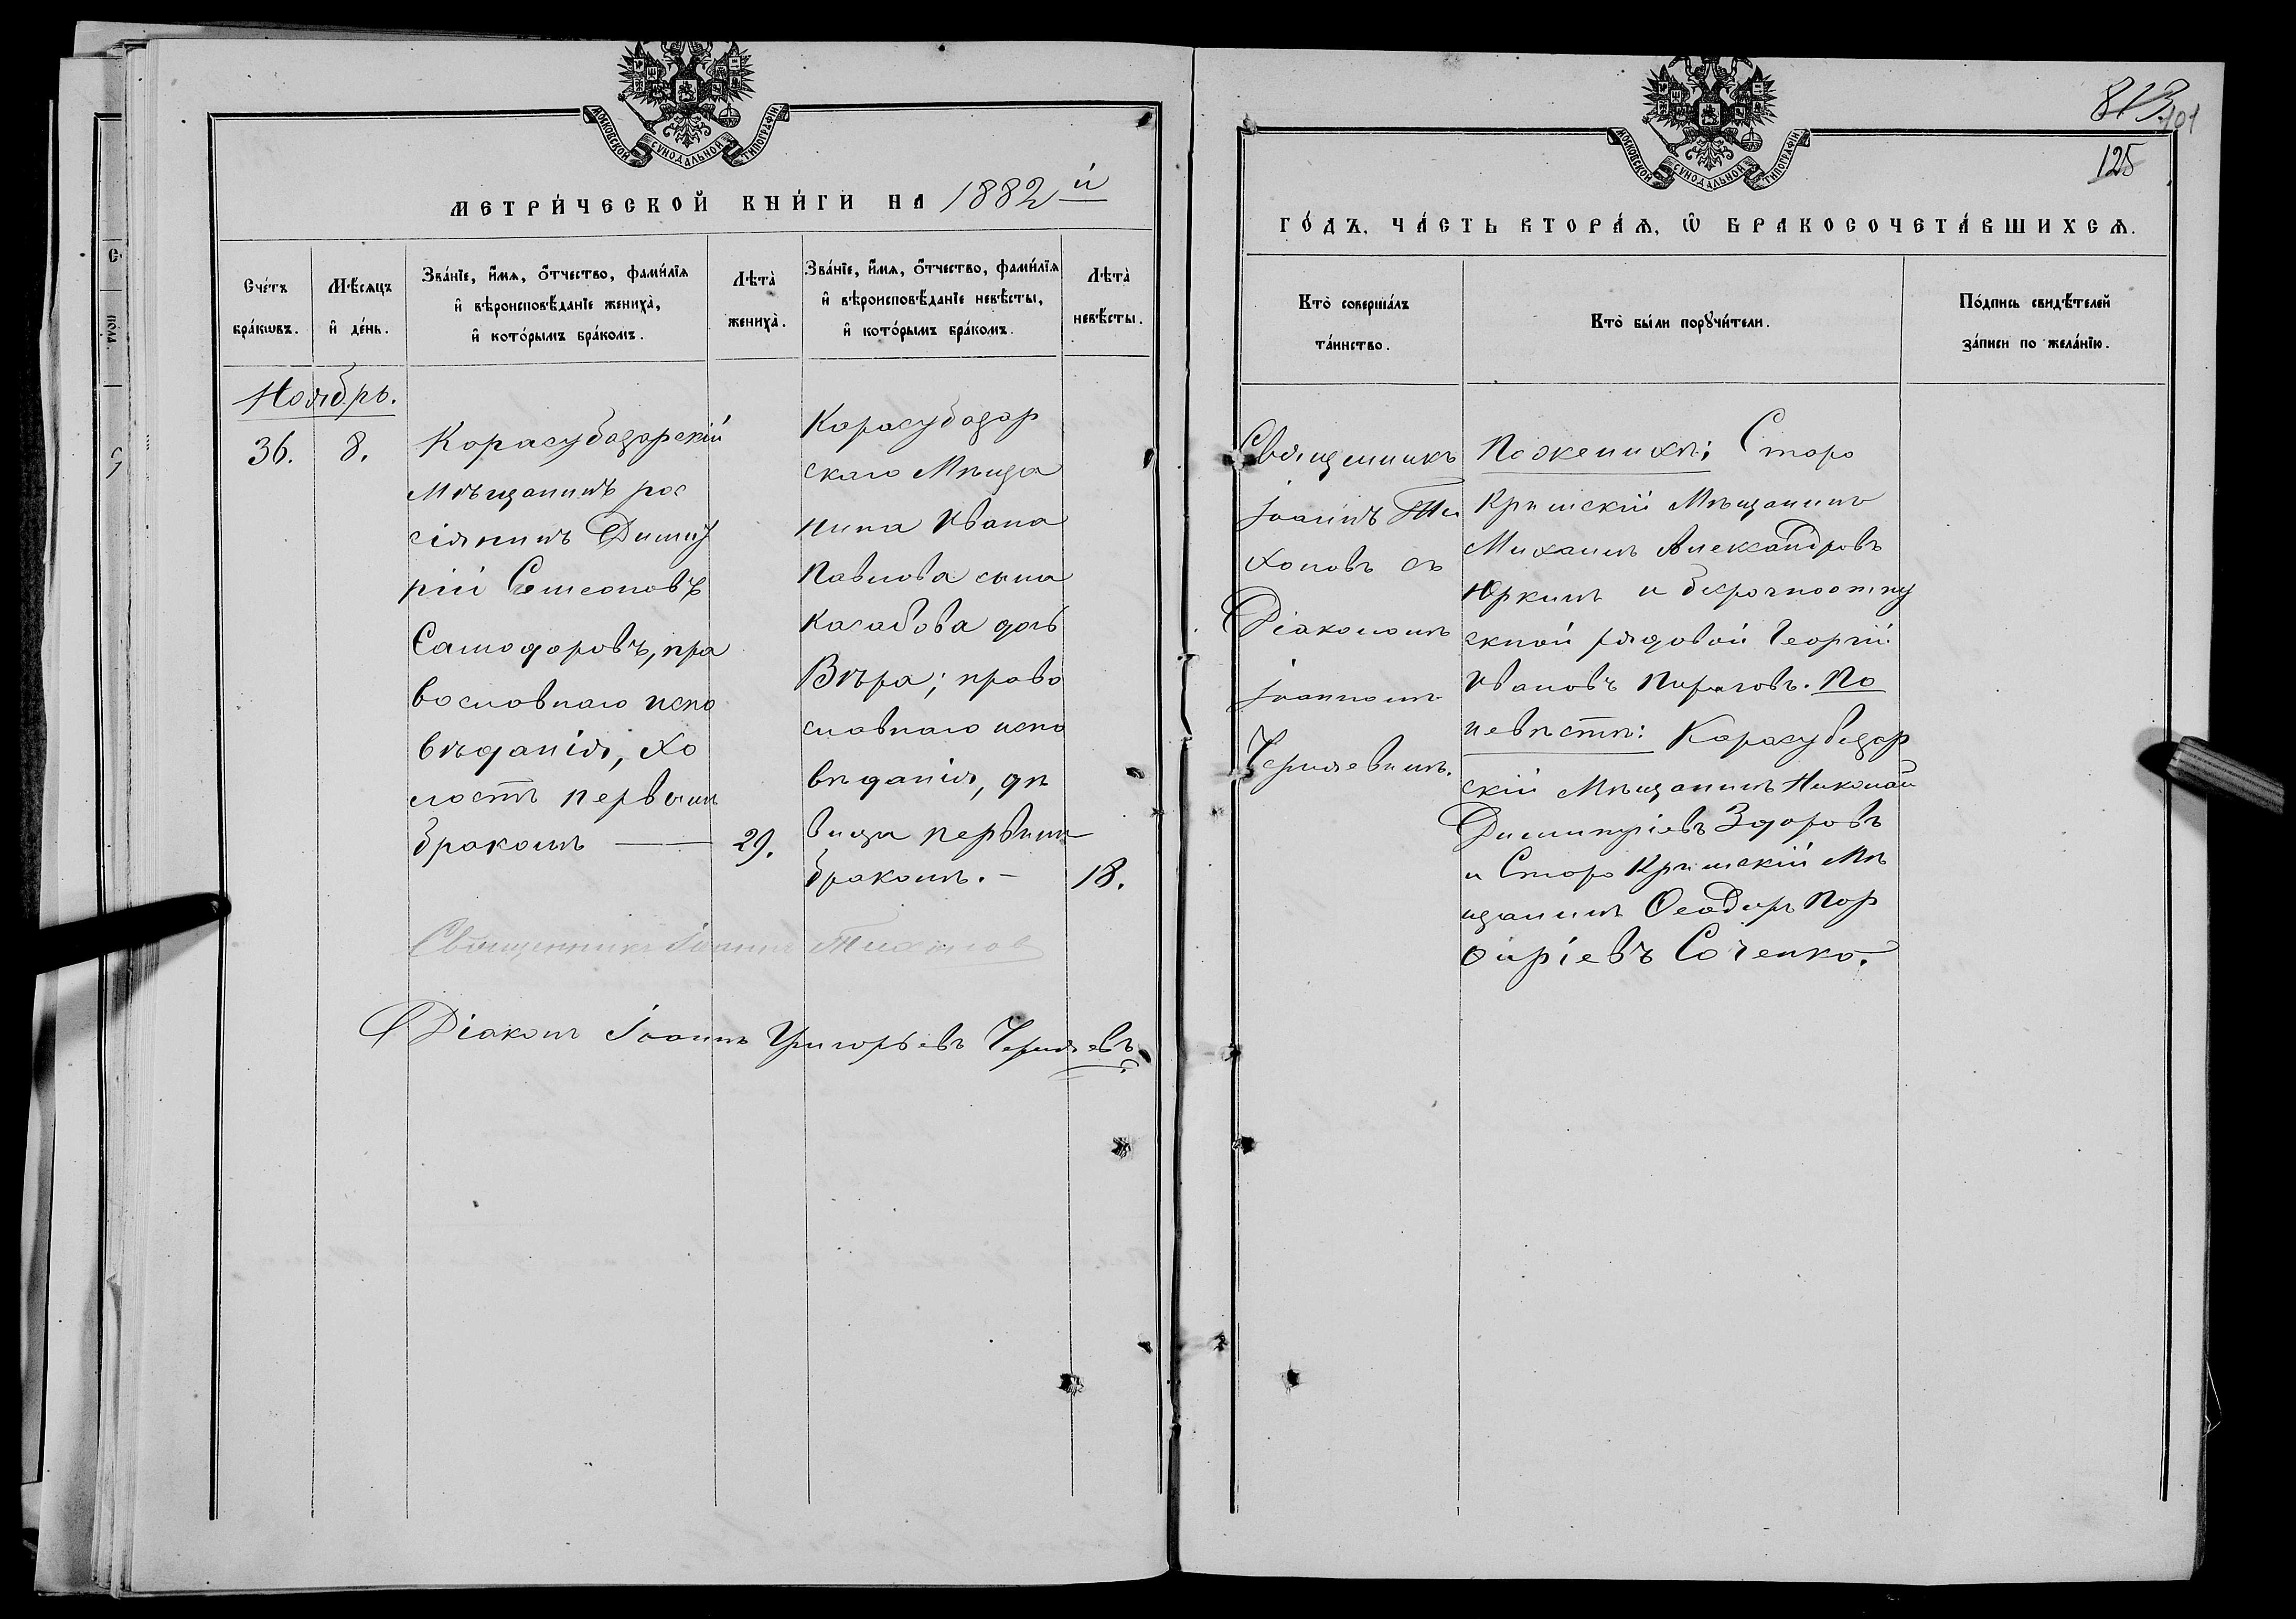 МОСКОВСКОЙ СѴНОДАЛЬНОЙ ТИПОГРАФІИ
МЕТРИ́ЧЕСКОЙ КНИ́ГИ НА 1882й
Сче́тъ бра́кѡвъ.
Мѣ́сяцъ и҆ де́нь.
Зва́нїе, и҆́мя, ѻ҆́тчество, фами́лїя
и҆ вѣроисповѣ́данїе жениха̀,
и҆ кото́рымъ бра́комъ.
Лѣта̀ жениха̀.
Зва́нїе, и҆́мя, ѻ҆́тчество, фами́лїя
и҆ вѣроисповѣ́данїе невѣ́сты,
и҆ кото́рымъ бра́комъ.
Лѣта̀ невѣ́сты.
Ноябрь.
36.
8.
Карасубазарскій
Мѣщанинъ рос
сіянинъ Димит
рій Симеоновъ
Самодаровъ, пра
вославнаго испо
вѣданія, хо
лостъ первымъ
бракомъ —
29.
Карасубазар
скаго Мѣща
нина Ивана
Павлова сына
Касабова дочь
Вѣра; право
славнаго испо
вѣданія, дѣ
вица первымъ
бракомъ. –
18.
Священникъ Іоаннъ Тихонов
Діаконъ Іоаннъ Григорьевъ Черняевъ.
101
125
МОСКОВСКОЙ СѴНОДАЛЬНОЙ ТИПОГРАФІИ
ГО́ДЪ, ЧА́СТЬ ВТОРА́Ѧ, Ѡ҆ БРАКОСОЧЕТА́ВШИХСѦ.
Кто̀ соверша́лъ
та́инство.
Кто̀ бы́ли порꙋчи́тели.
По́дпись свидѣ́телей
за́писи по жела́нїю.
Священникъ
Іоаннъ Ти
хоновъ съ
Діакономъ
Іоанномъ
Черняевымъ.
По женихѣ: Старо
Крымскій Мѣщанинъ
Михаилъ Александровъ
Юркинъ и безсрочноотпу
скной рядовой Георгій
Ивановъ Пироговъ. По
невѣстѣ: Карасубазар
скій Мѣщанинъ Николай
Димитріевъ Здоровъ
и Старо Крымскій Мѣ
щанинъ Ѳеодоръ Пор
ѳиріевъ Соченко.